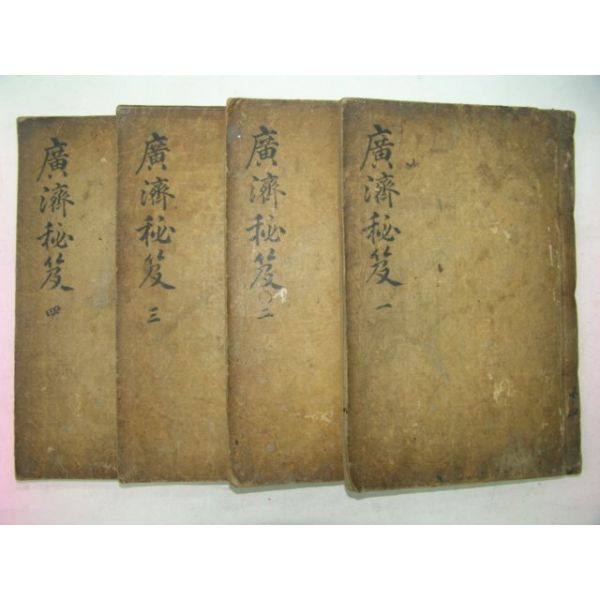 廣濟秘笈 一
廣濟秘笈 二
廣濟秘笈 三
廣濟秘笈 四